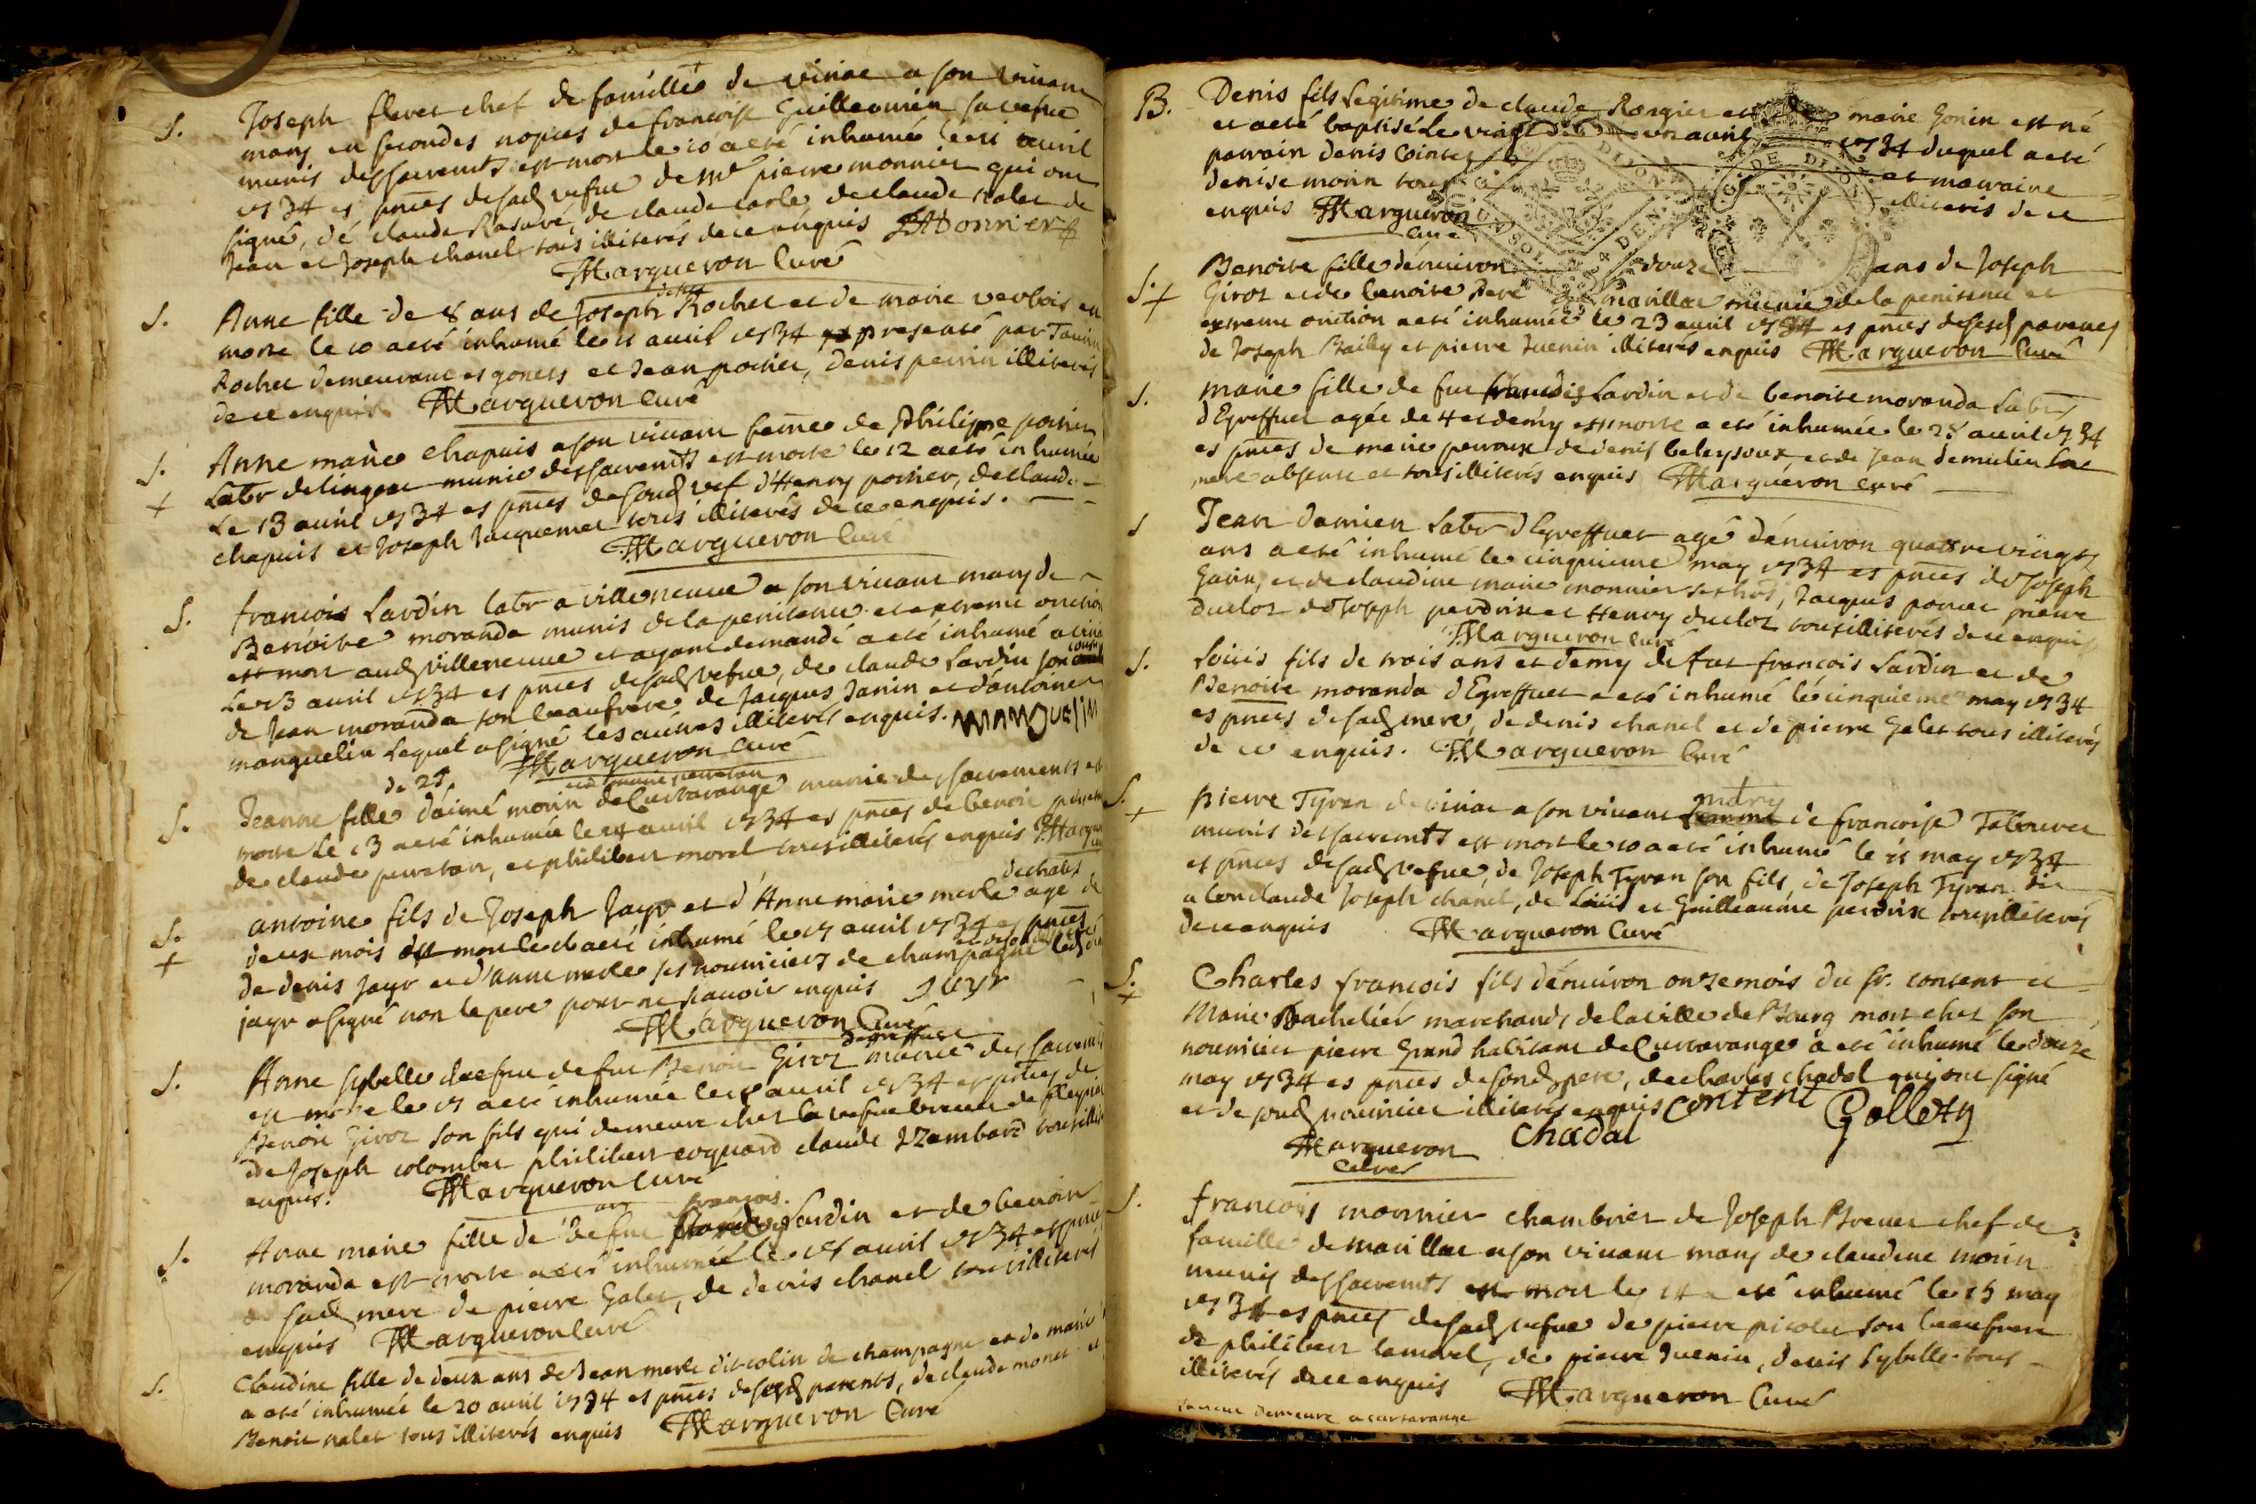 S. Joseph fleret chef de famille de viriac a son vivant
mary en secondes nopces de francoise Guilleaumin sa vefve
munis des sacremts est mort le 10 a eté inhumé le 11 avril
1734 es pnces de sad vefve de Mr pierre monnier qui ont
signé, de claude Rasuré, de claude carle de claude de
Jean et Joseph chanel tous illiterés de ce enquis Monnier
Margueron Curé
S. Anne fille de 8 ans de Joseph Rochet et de marie verbois est
morte le 10 a eté inhumé le 11 avril 1734 presenté par
Rochet demeurant es gonets et Jean poncier, denis perrin illiterés
de ce enquis Margueron Curé
S. Anne marie chapuis a son vivant feme de Philippe poncier
+ labr de lingeat munie des sacremts est morte le 12 a eté inhumée
Le 13 avril 1734 es pnces de soud vef d'Henry poncier, de claude
chapuis et Joseph Jacquemet tous illiterés de ce enquis.
Margueron Curé
S. francois Lardin labr a villeneuve a son vivant mary de
Benoite moranda munis de la penitence et extreme onction
est mort aud villeneuve et ayant demandé a eté inhumé a
Le 13 avril 1734 es pnces de sad vefve, de claude Lardin son
de Jean moranda son beaufrere de Jacques Janin et d'antoine
manguelin lequel a signé les autres illiterés enquis. manguelin
Margueron Curé
de 25
S. Jeanne fille d'aimé morin de Curtarange munie des sacrements est
morte Le 13 a eté inhumée le 14 avril 1734 es pnces de benoit
de claude perreton, et philibert morel tous illiterés enquis Margueron
de chales
S. antoine fils de Joseph Jayr et d'Anne marie merle agé de
+ deux mois est mort le 16 a eté inhumé le 17 avril 1734 es pnces
de denis Jayr et d'anne merle ses nourriciers de champagne led
jayr a signé non le pere pour ne scavoir enquis Jeyr
Margueron Curé
d'egreffuet
S. Anne sybelle vefve de feu Benoit Giroz munie des sacremts
est morte le 17 a eté inhumée le 18 avril 1734 es pnces de
Benoit Giroz son fils qui demeure chez la vefve brevet de
de Joseph colombet philibert coquard claude Zambard tous illiterés
enquis. Margueron Curé
françois
S. Anne marie fille de feu Lardin et de benoite
moranda est morte a eté inhumée Le 18 avril 1734 es pnces
de sad mere de pierre Galet, de denis chanel tous illiterés
enquis Margueron Curé
S. Claudine fille de deux ans de Jean merle dit colin de champagne et de marie
a eté inhumée le 20 avril 1734 es pnces de sesd parents, de claude monet et
Benoit nalet tous illiterés enquis Margueron Curé
B. Denis fils Legitime de claude Rongier et de marie Gonin est né
et a eté baptisé Le vingt un avril 1734 duquel a eté
parrain denis Cointet et marraine
denise morin tous illiterés de ce
enquis Margueron
Curé
G. DE DIJON
S. Benoite fille d'environ douze ans de Joseph
+ Giroz et de benoite Peré de marillac munie de la penitence et
extreme onction a eté inhumée le 23 avril 1734 es pnces de sesd parents
de Joseph Bailly et pierre Juenin illiterés enquis Margueron Curé
S. marie fille de feu francois Lardin et de benoite moranda Labr
d'Egreffuet agée de 4 et demy est morte a eté inhumée le 28 avril 1734
es pnces de marie peroux de denis beleysoux et de Jean demulin
mere absente et tous illiterés enquis Margueron curé
S Jean damien Labr d'Egreffuet agé d'environ quatre vingt
ans a eté inhumé le cinquieme may 1734 es pnces de Joseph
Gavin, et de claudine marie monnier, Jacques poncet prieur
duclos de Joseph perdrix et Henry duclos tous illiterés de ce enquis
Margueron Curé
S. Louis fils de trois ans et demy de feu françois Lardin et de
Benoite moranda d'Egreffuet a eté inhumé le cinquieme may 1734
es pnces de sad mere, de denis chanel et de pierre Galet tous illiterés
de ce enquis. Margueron Curé
mary
S. pierre Tyran de viriac a son vivant femme de francoise Tabouret
+ munis des sacremts est mort le 10 a eté inhumé le 11 may 1734
es pnces de sad vefve, de Joseph Tyran son fils, de Joseph Tyran dit
a Con claude Joseph chanel, de Louis et Guilleaume perdrix tous illiterés
de ce enquis Margueron Curé
S. Charles francois fils d'environ onze mois du Sr. content et
+ Marie Bachelier marchands de la ville de Bourg mort chez son
nourricier pierre Grand habitant de Curtarange a eté inhumé le douze
may 1734 es pnces de sond pere, de charles chadal qui ont signé
et de soud nourricier illiterés enquis content Gollety
Margueron chadal
Curé
S. francois monnier chambrier de Joseph Brevet chef de
famille de marillac a son vivant mary de claudine morin
munis des sacremts est mort le 14 a eté inhumé le 15 may
1734 es pnces de sad vefve de pierre picolet son beaufrere
de philibert lamorel, de pierre Juenin, denis Sybelle tous
illiterés de ce enquis Margueron Curé
demeure a curtarange